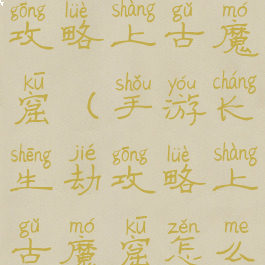 gōng lüè shàng gǔ mó
攻略上古魔
kū shǒu yóu cháng
窟（手游长
shēng jié gōng lüè shàng
生劫攻略上
gǔ mó kū zěn me
古魔窟怎么